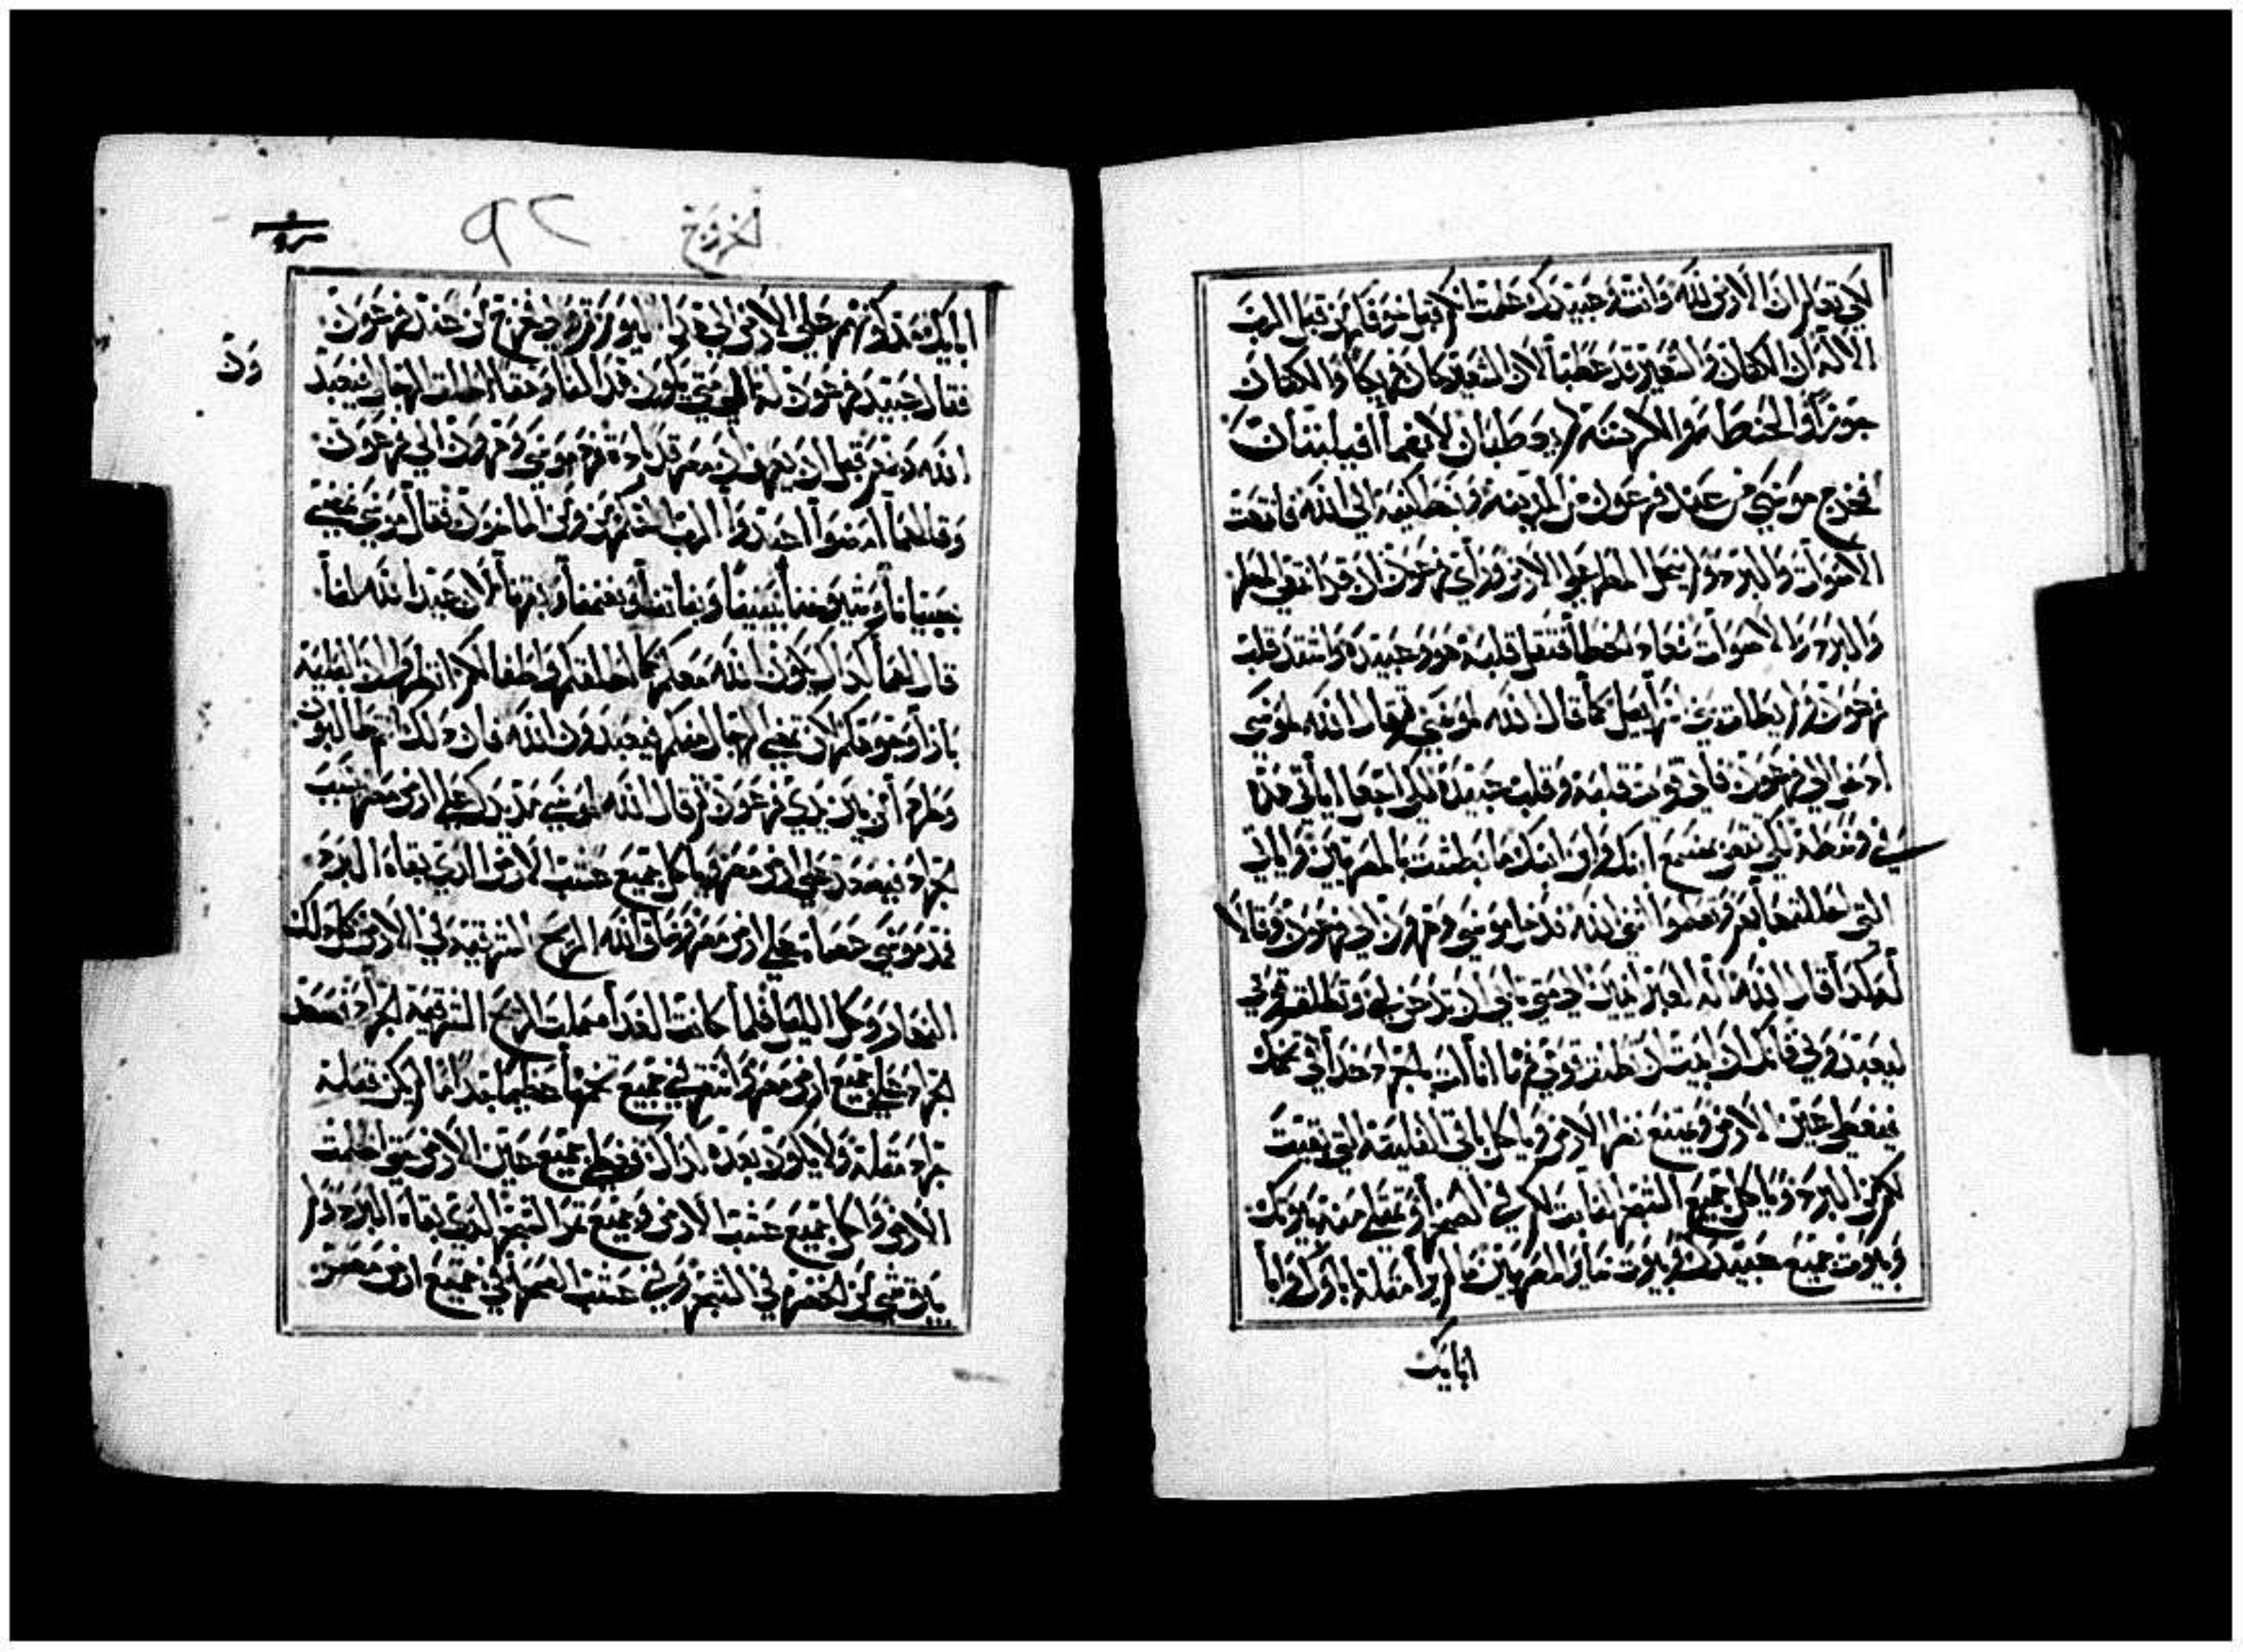 لكي تعلم ان الارض لله وانت وعبيدك علمت انكم قبل خوفكم من قبل الرب
الاله ان الكتان والشعير قد عطبا لان الشعير كان فريكا والكتان
جوزا والحنطة والكرسنة لم يعطبان لانهما
فخرج موسى من عند فرعون من المدينة وبسط كفيه الى الله فانتهت
الاصوات والبرد ولم ينزل المطر على الارض وراى فرعون ان قد انتهى المطر
والبرد والاصوات فعاد لخطا فثقل قلبه هو وعبيده واشتد قلب
فرعون ولم يطلق بني اسرايل كما قال الله لموسى ثم قال الله لموسى
ادخل الى فرعون فاني قويت قلبه وقلب عبيده لكي اجعل اياتي هذه
في وسطه لكي تقص بمسمع ابنك وابن ابنك ما بطشت بالمصريين واياتي
التي احللتها بهم وتعلموا انني الله فدخل موسى وهرون الى فرعون وقالا
له كذا قال الله اله العبرانيين الى متى تابى ان تذل من بين يدي وتطلق قومي
ليعبدوني فانك ان ابيت ان تطلق قومي ها انا ات بالجراد غدا في تخمك
فيغطي عين الارض وجميع الارض وياكل باقي الفليتة التي بقيت
لكم من البرد وياكل جميع الشجر النابت لكم في الصحرا وتمتلي منه بيوتك
وبيوت جميع عبيدك وبيوت ساير المصريين ما لم ير مثله اباوك وابا
ابايك
خروج
٩٢
ابايك منذ كونهم على الارض الى هذا اليوم ثم ولى وخرج من عند فرعون
فقال عبيد فرعون له الى متى يكون هذا لنا وهقا اطلق الرجال ليعبدوا
الله ربهم قبل ان تعرف ان مصر قد بادت فرد موسى وهرون الى فرعون
وقال لهما امضوا اعبدوا الرب الهكم من ومن الماضون فقال موسى نمضي
بصبياننا وشيوخنا ببنينا وبناتنا وغنمنا وبقرنا لان عيدا لله لنا
قال لهما كذاك يكون الله معكم كما اطلقكم واطفالكم انظروا ان البلية
بازا وجوهكم لا كن تمضي الرجال منكم فيعبدون الله فان ذلك انتم طالبون
وطردا من بين يدي فرعون ثم قال الله لموسى مد يدك على ارض مصر بسبب
الجراد فيصعد على ارض مصر وياكل جميع عشب الارض الذي بقاه البرد
فمد موسى عصاه على ارض مصر وساق الله الريح الشرقية في الارض كل ذلك
النهار وكل الليل فلما كانت الغداة حملت الريح الشرقية الجراد فصعد
الجراد على جميع ارض مصر وانتهى في جميع تخمها عظيما جدا ما لم يكن قبله
جراد مثله ولا يكون بعده كذلك وغطى جميع عين الارض حتى اظلمت
الارض واكل جميع عشب الارض وجميع ثمر الشجر الذي بقاه البرد ولم
يبق شي من الخضرة في الشجر وفي عشب الصحرا في جميع ارض مصر